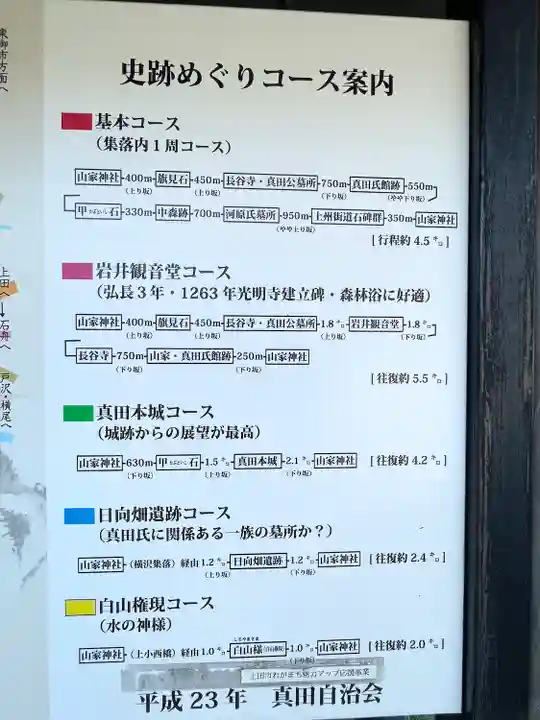 東御市方面へ
上田へ
石舟へ
戸沢・横尾へ
史跡めぐりコース案内
基本コース
(集落内1周コース)
山家神社-400m-旗見石-450m-長谷寺・真田公墓所-750m-真田氏館跡-550m
(上り坂) (上り坂) (下り坂) (やや下り坂)
甲石-330m-中森跡-700m-河原氏墓所-950m-上州街道石碑群-350m-山家神社
(やや上り坂)
[行程約4.5㌔]
岩井観音堂コース
(弘長3年・1263年光明寺建立碑・森林浴に好適)
山家神社-400m-旗見石-450m-長谷寺・真田公墓所-1.8㌔-岩井観音堂-1.8㌔
(上り坂) (上り坂) (上り坂) (下り坂)
長谷寺-750m-山家・真田氏館跡-250m-山家神社
(下り坂) (下り坂)
[往復約5.5㌔]
真田本城コース
(城跡からの展望が最高)
山家神社-630m-甲石-1.5㌔-真田本城-2.1㌔-山家神社 [往復約4.2㌔]
(下り坂) (上り坂) (下り坂)
日向畑遺跡コース
(真田氏に関係ある一族の墓所か?)
山家神社-(横沢集落)経由1.2㌔-日向畑遺跡-1.2㌔-山家神社 [往復約2.4㌔]
(上り坂) (下り坂)
白山権現コース
(水の神様)
山家神社-(上小西橋)経由1.0㌔-白山様-1.0㌔-山家神社 [往復約2.0㌔]
(下り坂)
上田市わがまち魅力アップ応援事業
平成23年 真田自治会